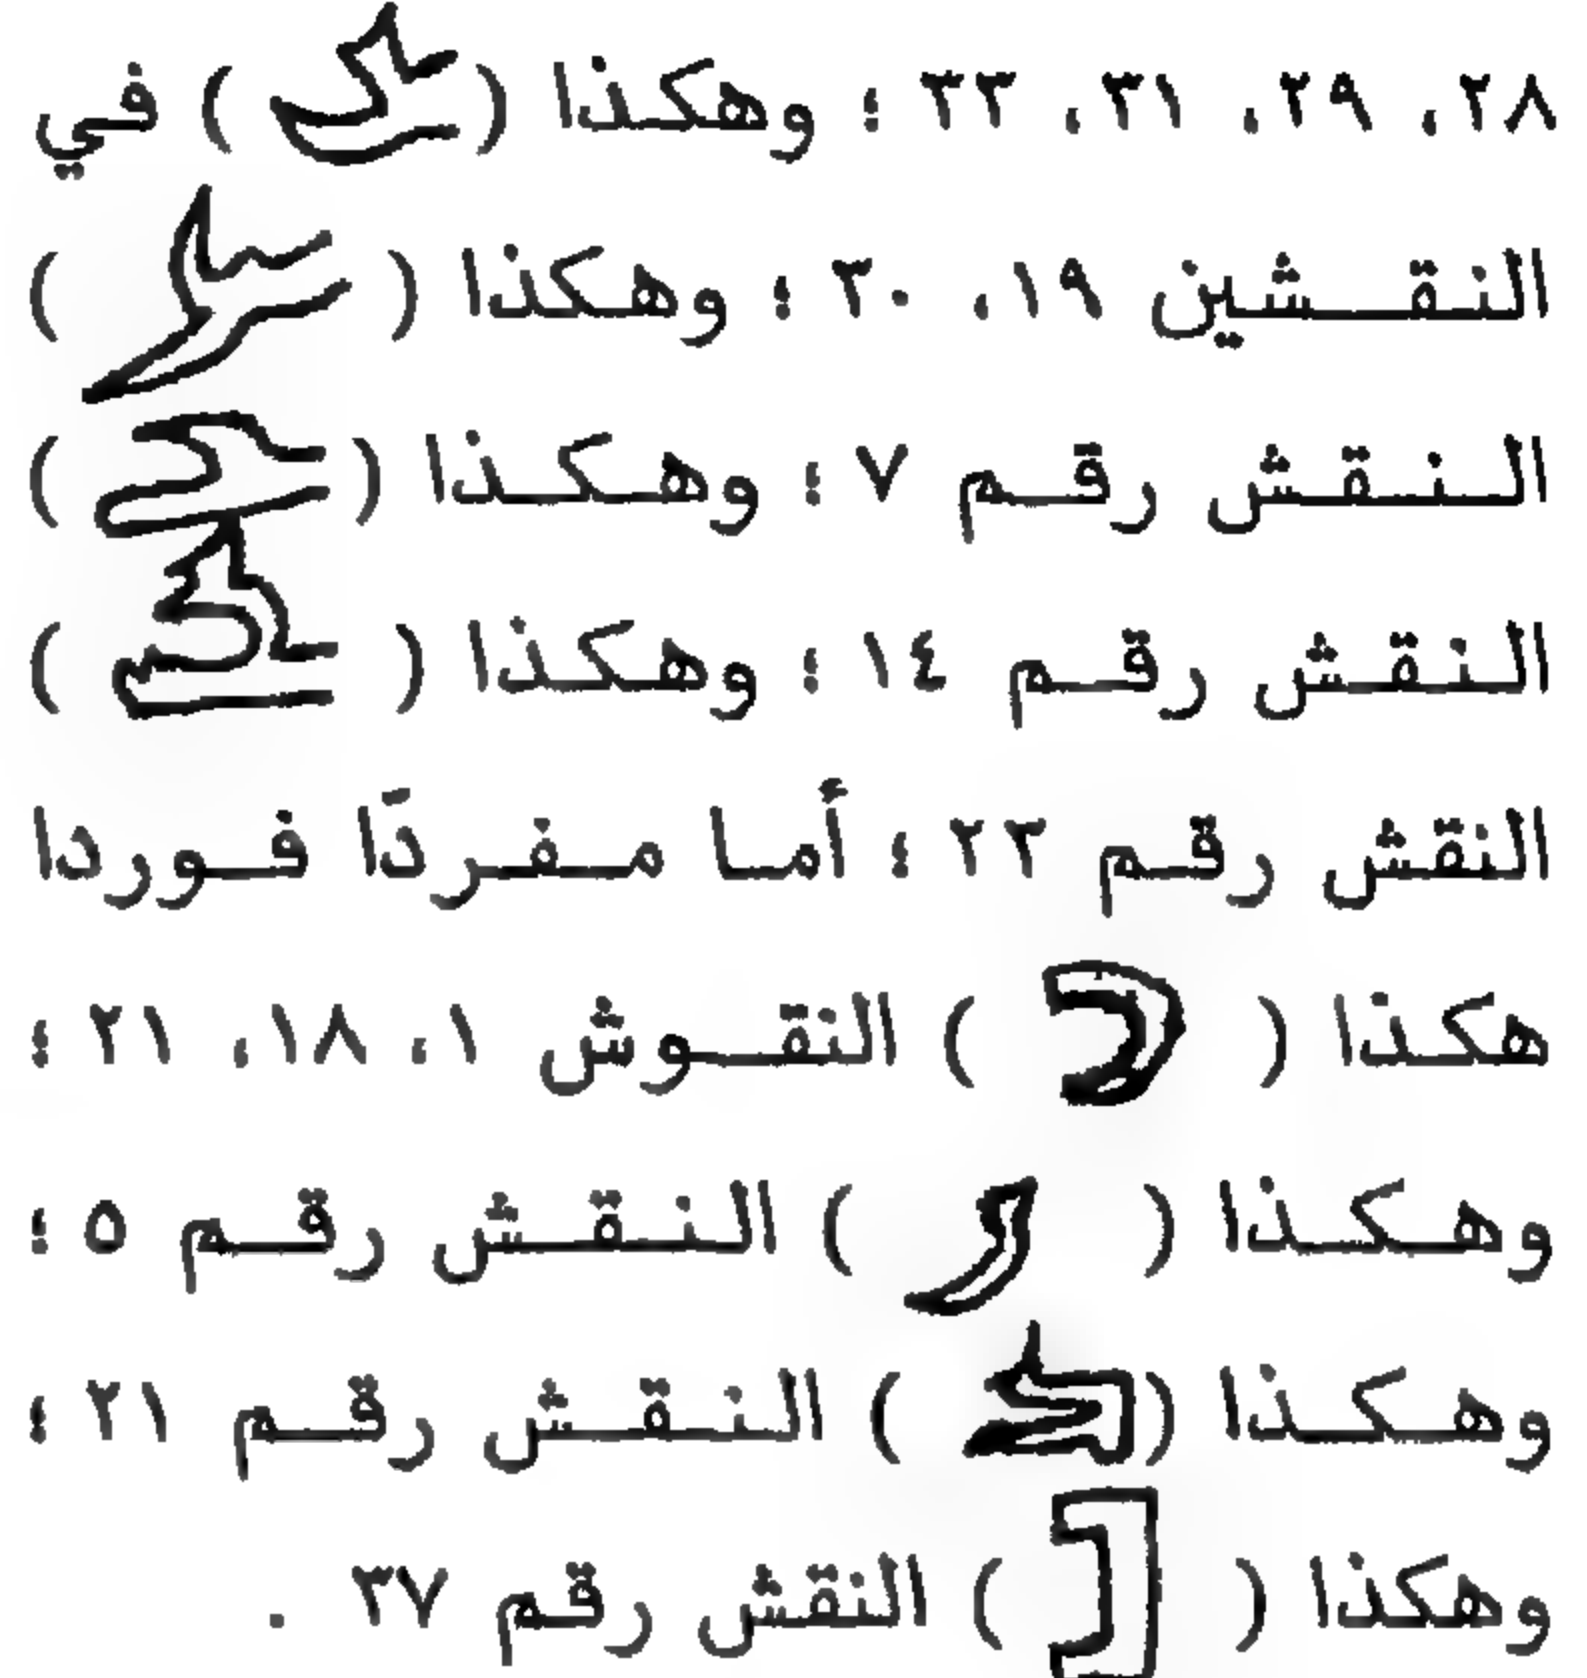 ٢٨، ٢٩، ٣١، ٣٣ ؛ وهكذا ( ) في
النقشين ١٩، ٣٠ ؛ وهكذا ( )
النقش رقم ٧ ؛ وهكذا ( )
النقش رقم ١٤ ؛ وهكذا ( )
النقش رقم ٢٣ ؛ أما مفردًا فوردا
هكذا ( ) النقوش ١، ١٨، ٢١ ؛
وهكذا ( ) النقش رقم ٥ ؛
وهكذا ( ) النقش رقم ٢١ ؛
وهكذا ( ) النقش رقم ٣٧ .